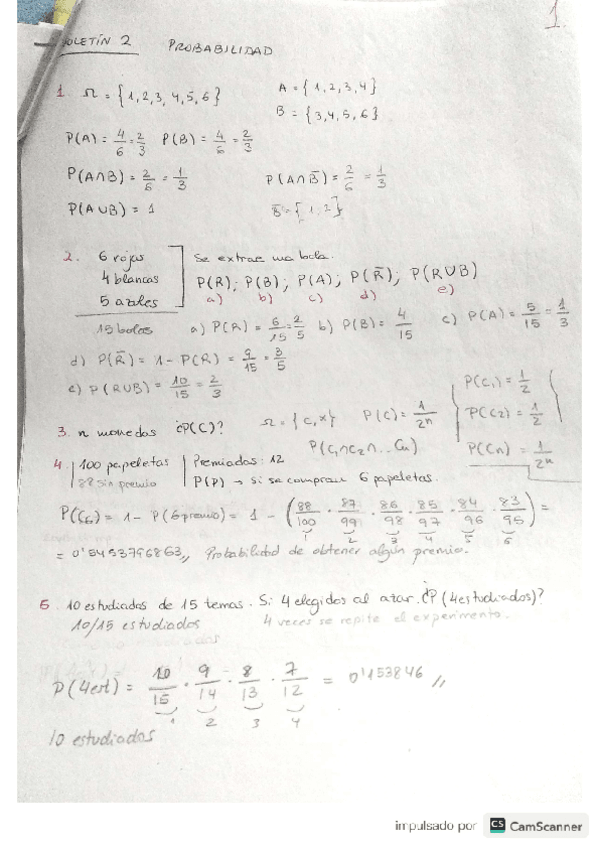 1.
BOLETÍN 2 PROBABILIDAD
1. Ω = {1,2,3,4,5,6} A = {1,2,3,4}
B = {3,4,5,6}
P(A) = 4/6 = 2/3 P(B) = 4/6 = 2/3
P(A∩B) = 2/6 = 1/3 P(A∩B̄) = 2/6 = 1/3
P(A∪B) = 1 B̄ = {1,2}
2. 6 rojas Se extrae una bola.
4 blancas P(R); P(B); P(A); P(R̄); P(R∪B)
5 azules a) b) c) d) e)
15 bolas a) P(R) = 6/15 = 2/5 b) P(B) = 4/15 c) P(A) = 5/15 = 1/3
d) P(R̄) = 1 - P(R) = 9/15 = 3/5
e) P(R∪B) = 10/15 = 2/3
P(C₁) = 1/2
3. n monedas ¿P(C)? Ω = {C,X} P(C) = 1/2ⁿ P(C₂) = 1/2
P(C₁∩C₂∩... Cn) P(Cn) = 1/2ⁿ
4. 100 papeletas Premiadas: 12
88 sin premio P(P) → Si se compran 6 papeletas.
P(C₆) = 1 - P(6 premio) = 1 - (88/100 · 87/99 · 86/98 · 85/97 · 84/96 · 83/95) =
1 2 3 4 5 6
= 0'5453796863,, Probabilidad de obtener algún premio.
5. 10 estudiados de 15 temas. Si 4 elegidos al azar. ¿P(4 estudiados)?
10/15 estudiados 4 veces se repite el experimento.
P(4est) = 10/15 · 9/14 · 8/13 · 7/12 = 0'153846 ,,
1 2 3 4
10 estudiados
impulsado por CS CamScanner